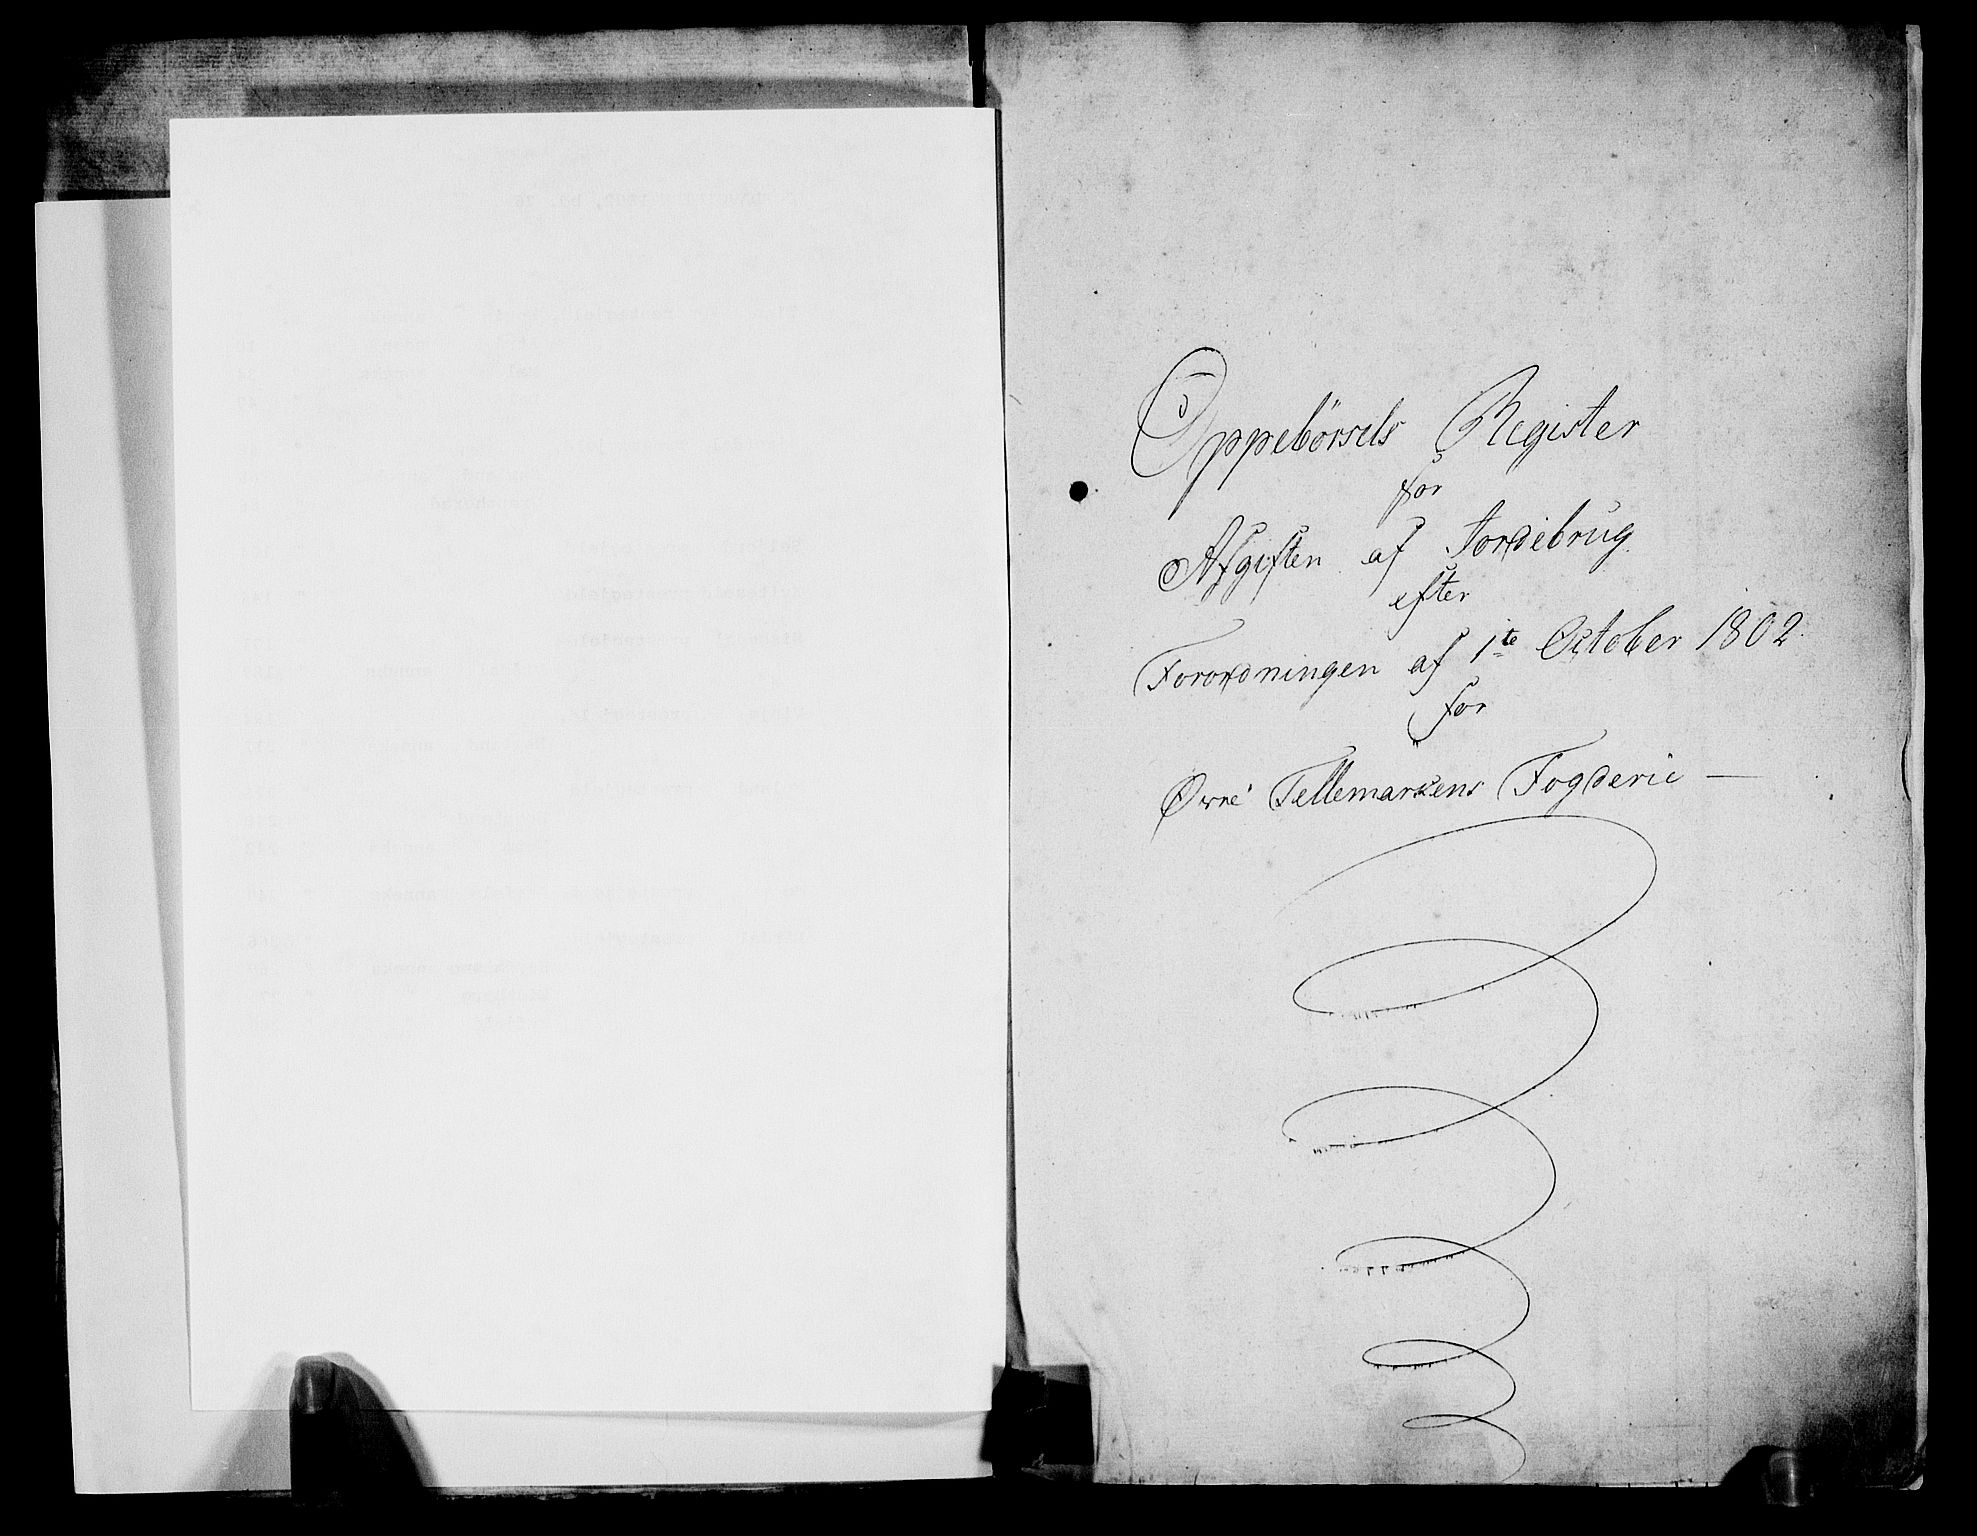 Oppebörsels Register
for
Afgiften af Jordebrug
efter
Forordningen af 1te October 1802
for
Øvre Tellemarkens Fogderie —